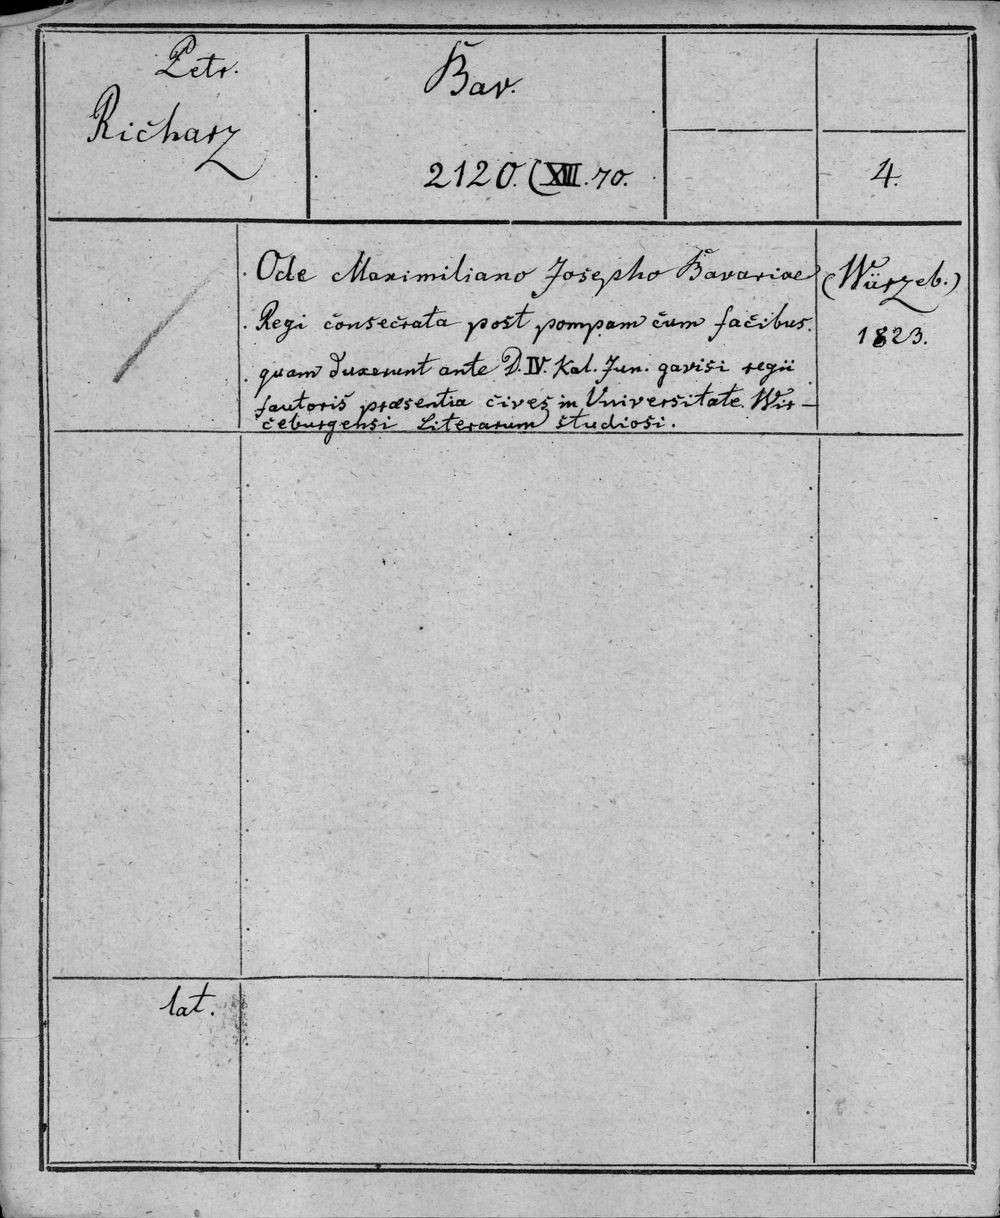 Petr.
Richarz
Bav.
2120. (XIII. 70.
4.
Ode Maximiliano Josepho Bavariae
Regi consecrata post pompam cum facibus
quam duxerunt ante D. IV. Kal. Jun. gavisi regii
fautoris præsentia cives in Universitate Wir-
ceburgensi Literarum studiosi.
(Würzeb.)
1823.
lat.